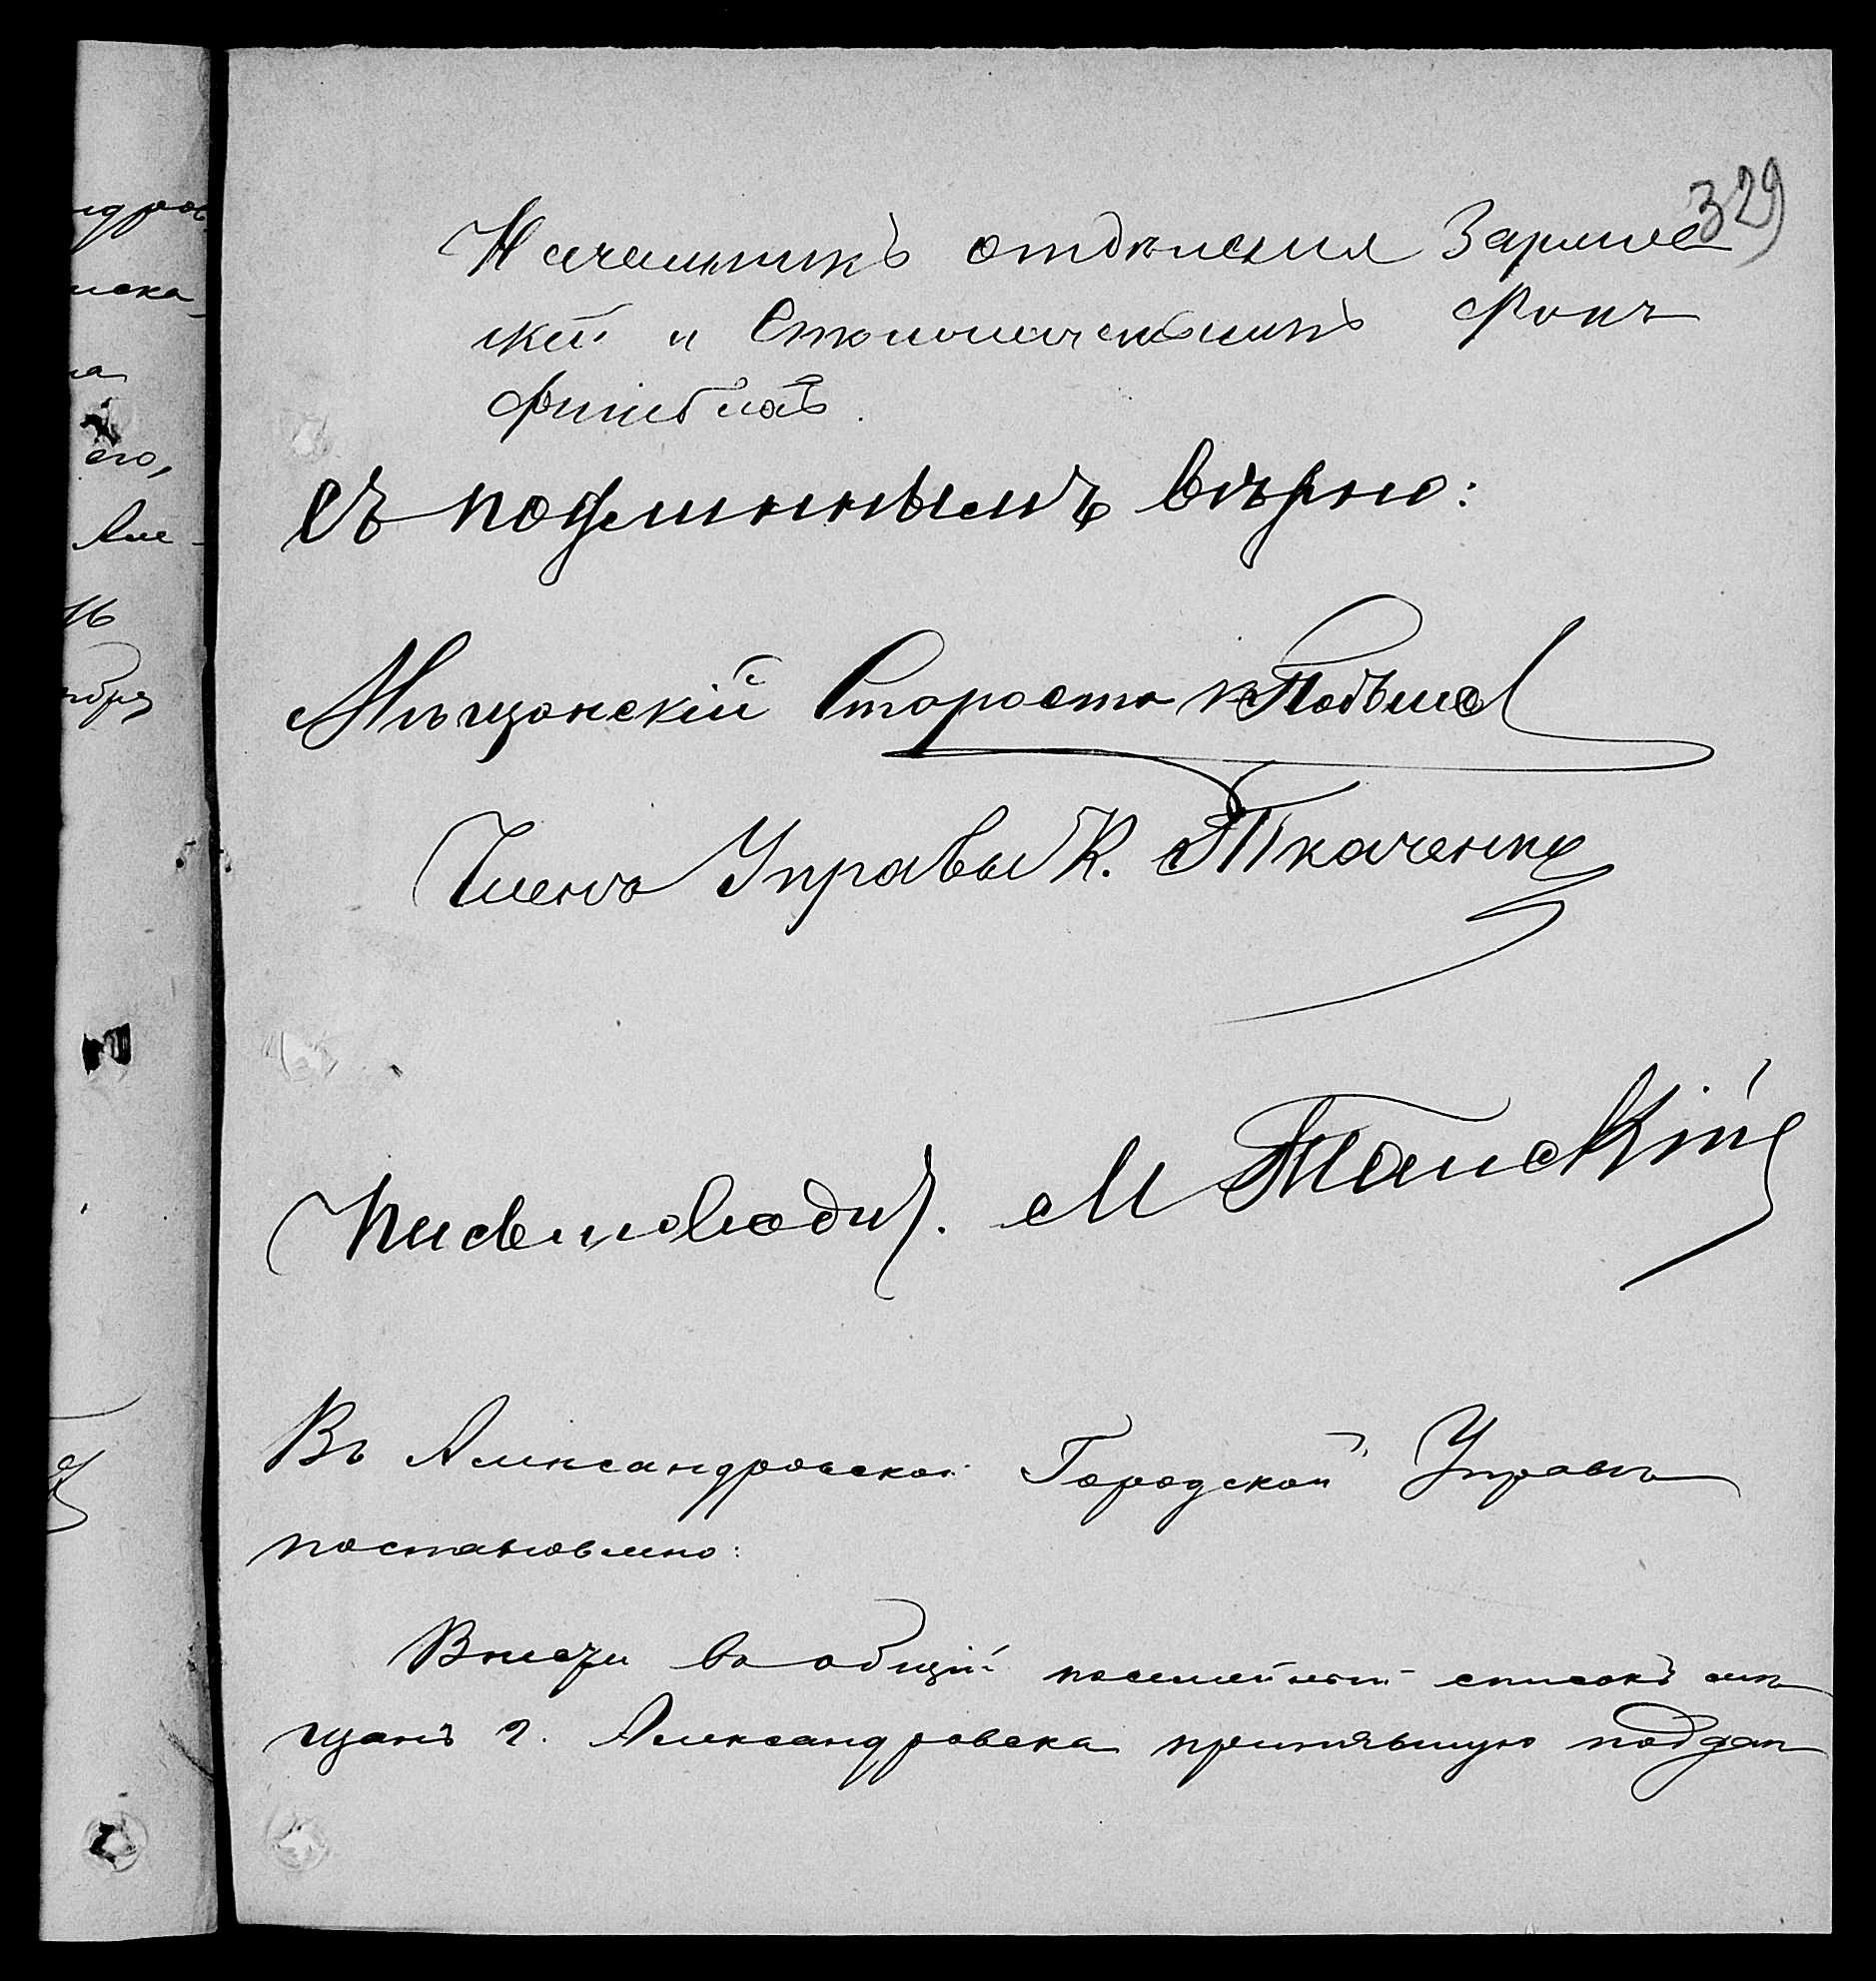 329
Начальникъ отдѣленія Зарине
кій и Столоначальникъ Фонъ
съ подлиннымъ вѣрно:
Мѣщанскій Староста
Членъ Управы К. Ткаченко
Письмоводит. М Танскій
Въ Александровской Городской Управѣ
постановлено:
Внести въ общій посемейный списокъ мѣ
щанъ г. Александровска принявшую поддан